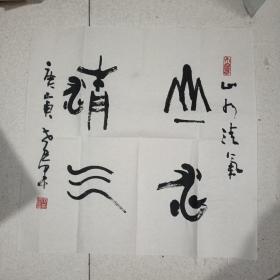 山水清氣
山水
清气
庚寅